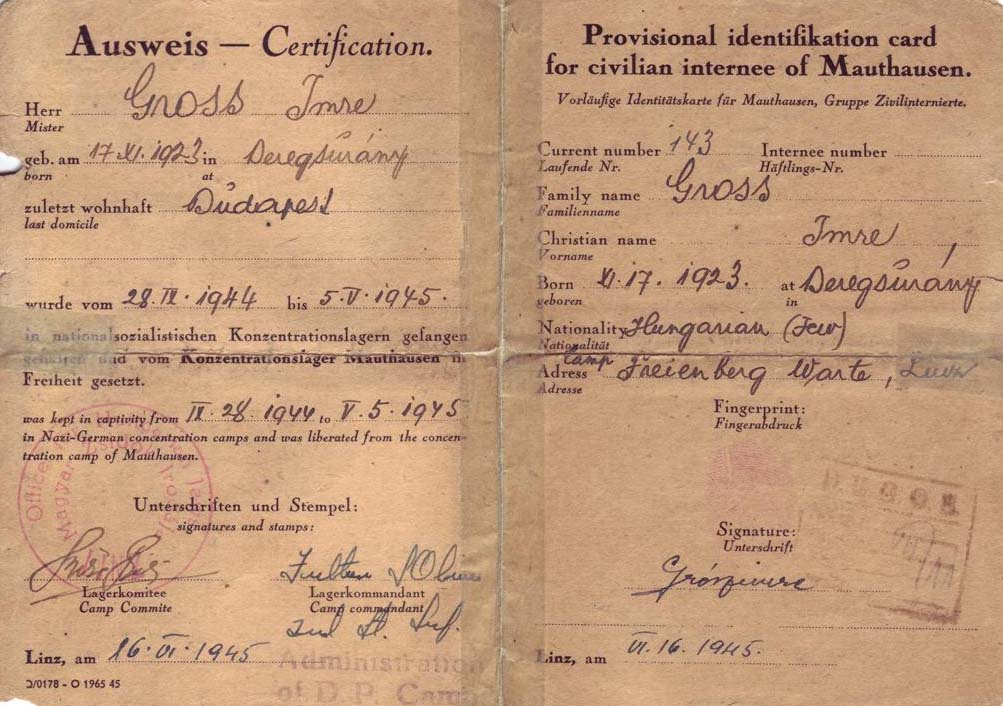 Ausweis — Certification.
Herr Gross Imre
Mister
geb. am 17.XI.1923 in Deregsurány
born at
zuletzt wohnhaft Budapest
last domicile
wurde vom 28.IX.1944 bis 5.V.1945.
in nationalsozialistischen Konzentrationslagern gefangen
gehalten und vom Konzentrationslager Mauthausen in
Freiheit gesetzt.
was kept in captivity from IX.28.1944 to V.5.1945
in Nazi-German concentration camps and was liberated from the concen-
tration camp of Mauthausen.
Office
Magyar
Unterschriften und Stempel:
signatures and stamps:
Lagerkomitee Lagerkommandant
Camp Commite Camp commandant
Linz, am 16.VI.1945
Administration
of D.P. Camp
D/0178 - O 1965 45
Provisional identifikation card
for civilian internee of Mauthausen.
Vorläufige Identitätskarte für Mauthausen, Gruppe Zivilinternierte.
Current number 143 Internee number
Laufende Nr. Häftlings-Nr.
Family name Gross
Familienname
Christian name Imre
Vorname
Born XI.17.1923. at Deregsurány
geboren in
Nationality Hungarian (Jew)
Nationalität
Adress camp Freienberg Warte, Linz
Adresse
Fingerprint:
Fingerabdruck
Signature:
Unterschrift
Linz, am VI.16.1945.